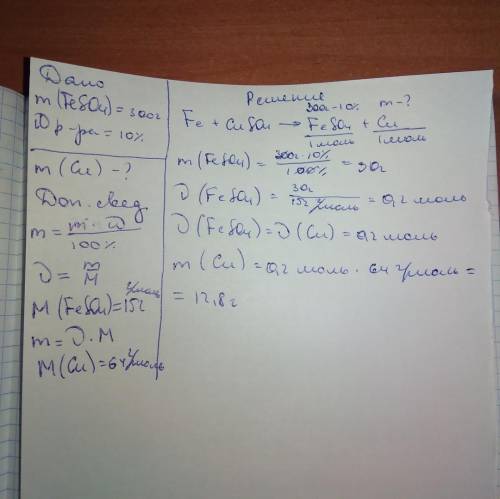 Дано
m(FeSO4)=300г
ω р-ра = 10%
m(Cu)-?
Доп. свед
m = m·ω / 100%
ν = m/M
M(FeSO4)=152 г/моль
m=ν·M
M(Cu)=64 г/моль
Решение
300г·10% m-?
Fe + CuSO4 → FeSO4 + Cu
1 моль 1 моль
m(FeSO4) = 300г·10% / 100% = 30г
ν(FeSO4) = 30г / 152 г/моль = 0,2 моль
ν(FeSO4)=ν(Cu)=0,2 моль
m(Cu)=0,2 моль · 64 г/моль =
= 12,8г